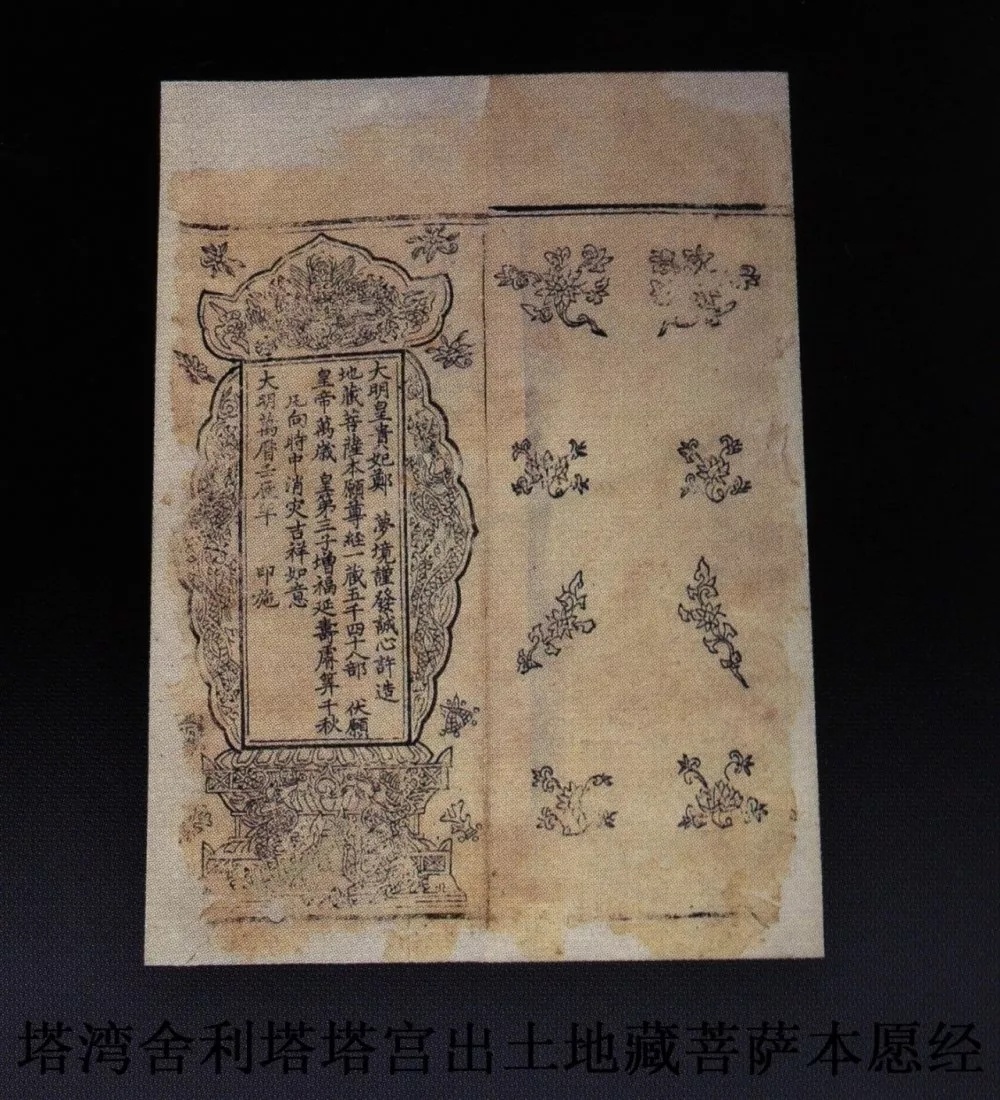 大明皇貴妃鄭 夢境謹發誠心許造
地藏菩薩本願尊經一藏五千四十八部 伏願
皇帝萬歲 皇第三子增福延壽算千秋
凡向時中消灾吉祥如意
大明萬曆壬年 印施
塔湾舍利塔塔宫出土地藏菩萨本愿经